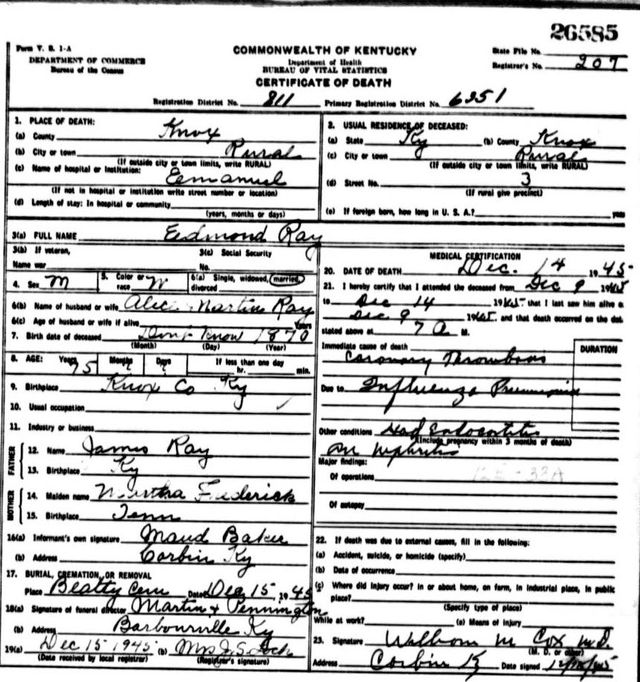 26585
Form V. S. 1-A
DEPARTMENT OF COMMERCE
Bureau of the Census
COMMONWEALTH OF KENTUCKY
Department of Health
BUREAU OF VITAL STATISTICS
CERTIFICATE OF DEATH
State File No.
Registrar's No. 207
Registration District No. 811 Primary Registration District No. 6351
1. PLACE OF DEATH:
(a) County Knox
(b) City or town Rural
(If outside city or town limits, write RURAL)
(c) Name of hospital or institution: Emanuel
(If not in hospital or institution write street number or location)
(d) Length of stay: In hospital or community
(years, months or days)
2. USUAL RESIDENCE OF DECEASED:
(a) State Ky (b) County Knox
(c) City or town Rural
(If outside city or town limits, write RURAL)
(d) Street No. 3
(If rural give precinct)
(e) If foreign born, how long in U. S. A.? years
3(a) FULL NAME Edmond Ray
3(b) If veteran,
Name war
3(c) Social Security
No.
4. Sex M 5. Color or race W 6(a) Single, widowed, married, divorced
6(b) Name of husband or wife Martin Ray
6(c) Age of husband or wife if alive Years
7. Birth date of deceased Dont Know 1870
(Month) (Day) (Year)
8. AGE: Years 75 Months ? Days ? If less than one day
hr. min.
9. Birthplace Knox Co Ky
10. Usual occupation
11. Industry or business
FATHER
12. Name James Ray
13. Birthplace Ky
MOTHER
14. Maiden name Martha Frederick
15. Birthplace Tenn
16(a) Informant's own signature Maud Baker
(b) Address Corbin Ky
17. BURIAL, CREMATION, OR REMOVAL
Place Beatty Cem Date Dec 15 1945
18(a) Signature of funeral director Martin & Pennington
(b) Address Barbourville Ky
19(a) Dec 15 1945 (b) Mrs J
(Date received by local registrar) (Registrar's signature)
MEDICAL CERTIFICATION
20. DATE OF DEATH Dec. 14 1945
21. I hereby certify that I attended the deceased from Dec 9 1945
to Dec 14 1945 that I last saw him alive on
Dec 9 1945, and that death occurred on the date
stated above at 7 A M.
Immediate cause of death DURATION
Coronary Thrombosis
Due to Influenza Pneumonia
Other conditions Had Endocarditis
(Include pregnancy within 3 months of death)
Nephritis
Major findings:
Of operations
Of autopsy
22. If death was due to external causes, fill in the following:
(a) Accident, suicide, or homicide (specify)
(b) Date of occurrence
(c) Where did injury occur? in or about home, on farm, in industrial place, in public
place?
(Specify type of place)
While at work? (e) Means of injury
23. Signature M Cox M.D.
(M. D. or other)
Address Corbin Ky Date signed